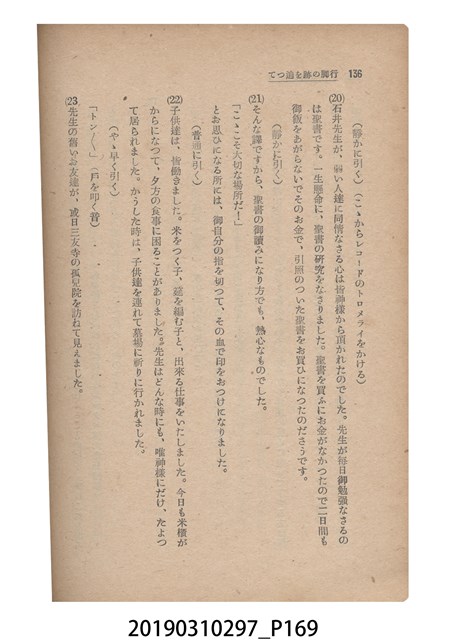 行脚の跡を追つて 136
（靜かに引く）（こゝからレコードのトロメライをかける）
(20) 石井先生が、弱い人達に同情なさる心は皆神様から頂かれたのでした。先生が毎日御勉強なさるの
は聖書です。一生懸命に、聖書の研究をなさりました。聖書を買ふにお金がなかつたので二日間も
御飯をあがらないでそのお金で、引照のついた聖書をお買ひになつたのださうです。
（靜かに引く）
(21) そんな譯ですから、聖書の御讀みになり方でも、熱心なものでした。
「こゝこそ大切な場所だ！」
とお思ひになる所には、御自分の指を切つて、その血で印をおつけになりました。
（普通に引く）
(22) 子供達は、皆働きました。米をつく子、縄を編む子と、出來る仕事をいたしました。今日も米櫃が
からになつて、夕方の食事に困ることがありました。先生はどんな時にも、唯神様にだけ、たよつ
て居られました。かうした時は、子供達を連れて墓場に祈りに行かれました。
（やゝ早く引く）
「トン〱」（戸を叩く音）
(23) 先生の舊いお友達が、或日三友寺の孤兒院を訪ねて見えました。
20190310297_P169